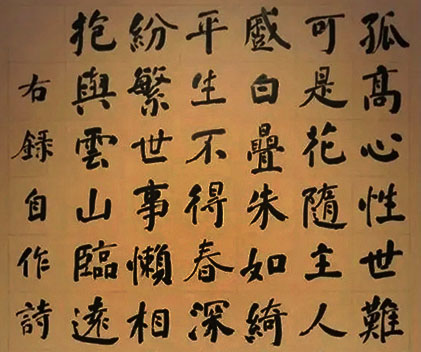 孤高心性世難
可是花隨主人
戚白疊朱如綺
平生不得春深
紛繁世事懶相
抱與雲山臨遠
右錄自作詩